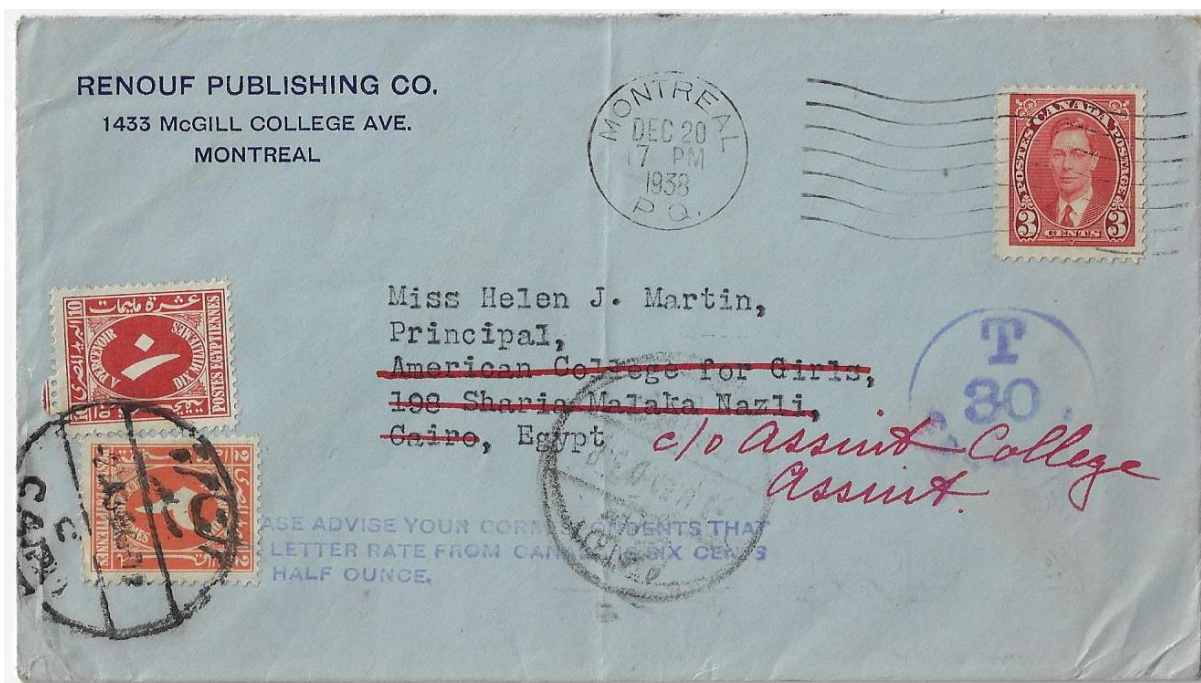 RENOUF PUBLISHING CO.
1433 McGILL COLLEGE AVE.
MONTREAL
MONTREAL
DEC 20
7 PM
1938
P.Q.
POSTES CANADA POSTAGE
3 CENTS 3
Miss Helen J. Martin,
Principal,
American College for Girls,
198 Sharia Malaka Nazli,
Cairo, Egypt
c/o Assiut College
Assiut.
T
30
C.
10 عشرة مليمات
البريد المصري
A PERCEVOIR
١٠
DIX MILLIEMES
POSTES EGYPTIENNES
2
2
CAIRO
ASE ADVISE YOUR CORRESPONDENTS THAT
LETTER RATE FROM CANADA SIX CENTS
HALF OUNCE.